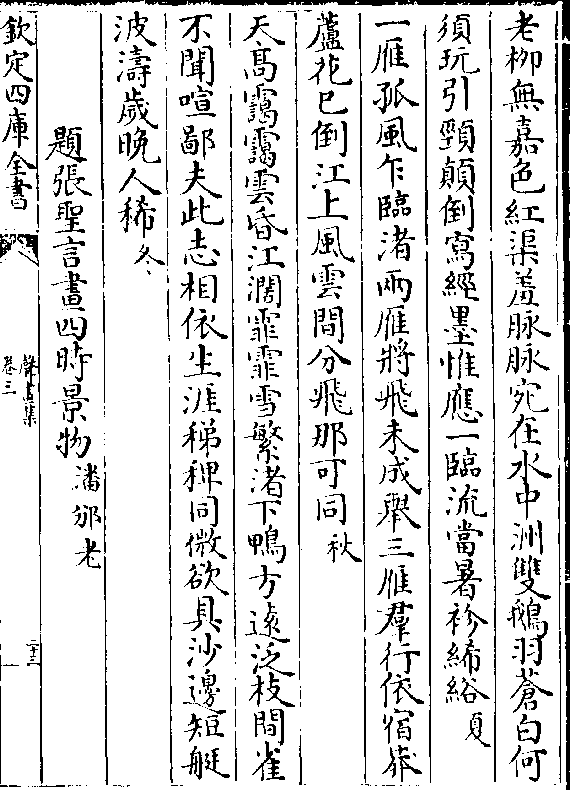 老柳無嘉色紅渠羞脉脉宛在水中洲雙鵝羽蒼白何
須玩引頸顛倒寫經墨惟應一臨流當暑袗絺綌夏
一雁孤風乍臨渚兩雁將飛未成舉三雁羣行依宿莽
蘆花已倒江上風雲間分飛那可同秋
天髙靄靄雲昏江濶霏霏雪繁渚下鴨方逺泛枝間雀
不聞喧鄙夫此志相依生涯稊稗同微欲具沙邊短艇
波濤歲晚人稀冬
題張聖言畫四時景物潘邠老
欽定四庫全書
聲畫集
卷三
二十三